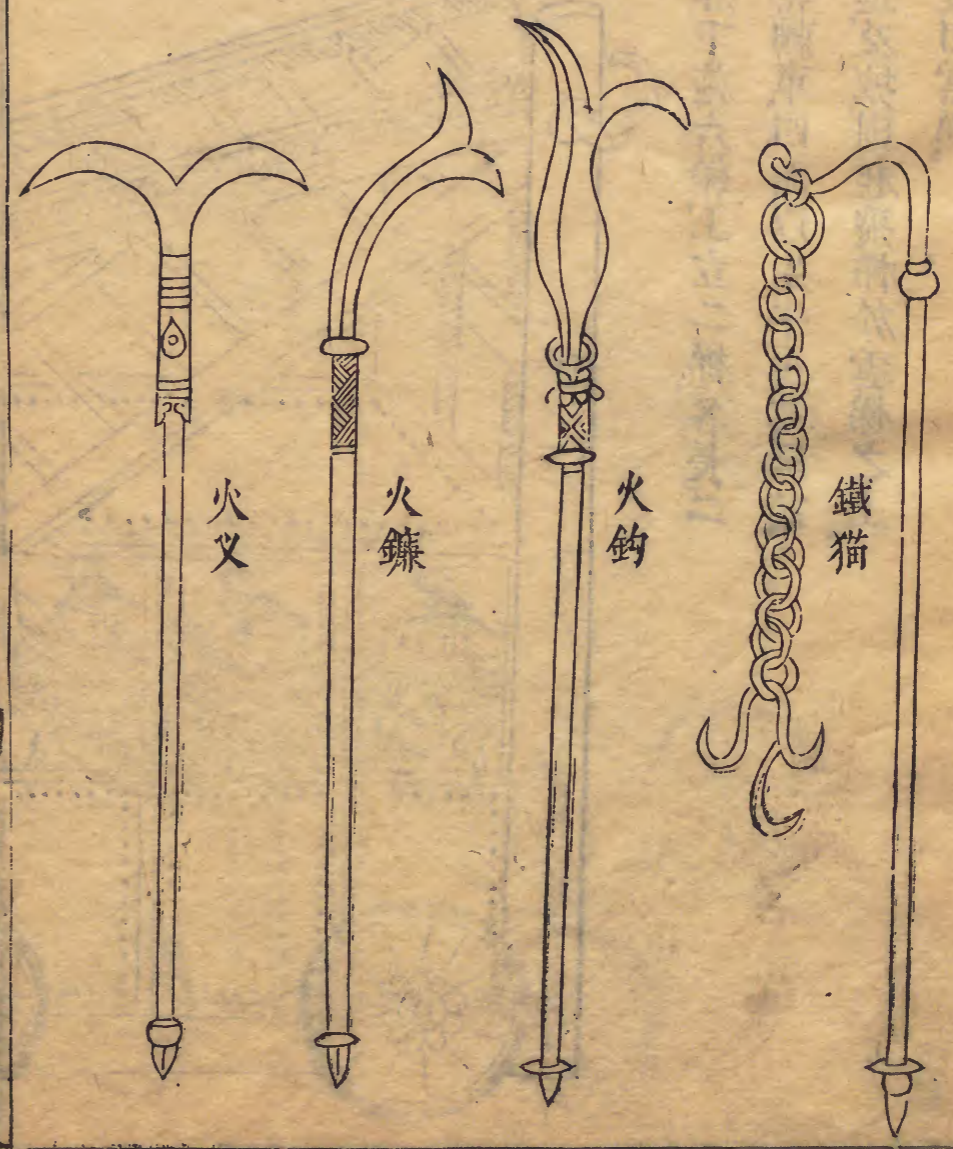 鐵猫
火鈎
火鐮
火叉